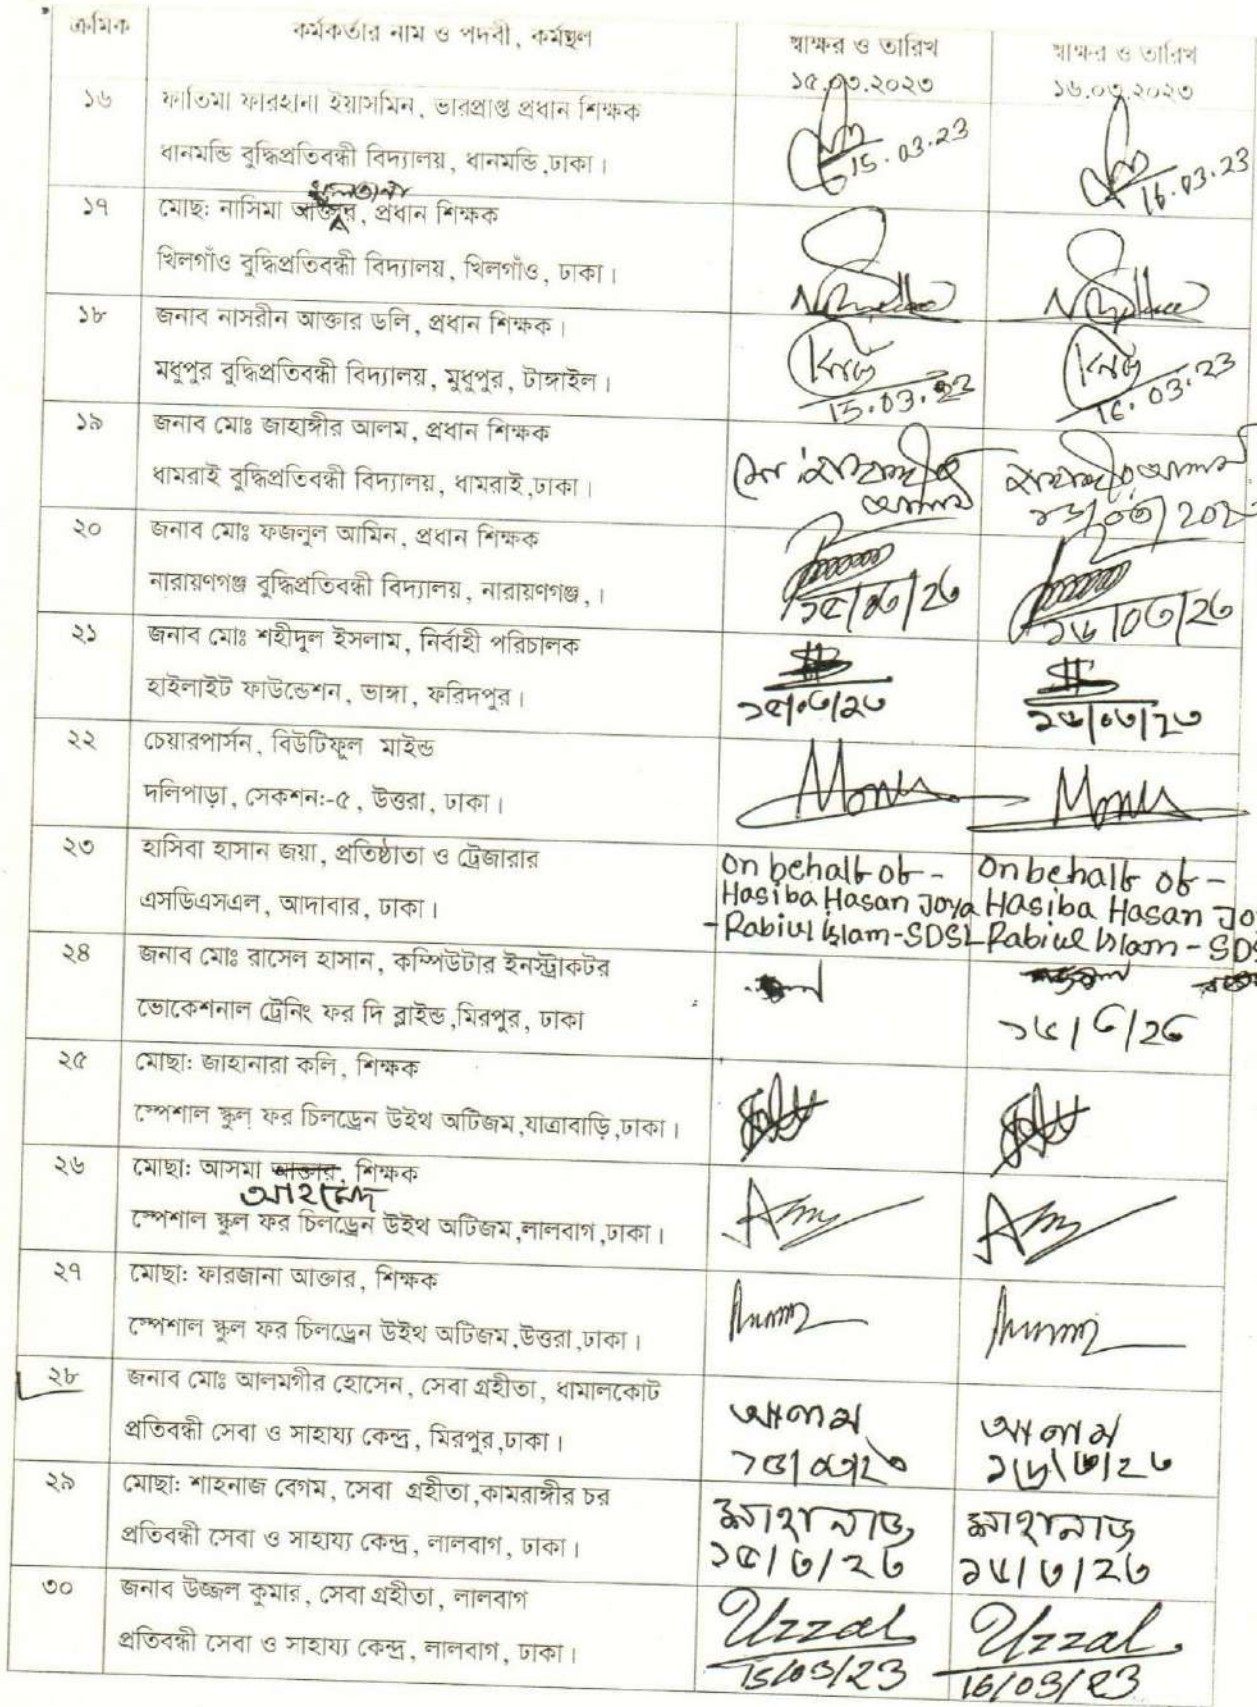 ক্রমিক কর্মকর্তার নাম ও পদবী, কর্মস্থল স্বাক্ষর ও তারিখ স্বাক্ষর ও তারিখ
১৫.০৩.২০২৩ ১৬.০৩.২০২৩
১৬ ফাতিমা ফারহানা ইয়াসমিন, ভারপ্রাপ্ত প্রধান শিক্ষক
ধানমন্ডি বুদ্ধিপ্রতিবন্ধী বিদ্যালয়, ধানমন্ডি,ঢাকা। 15.03.23 16.03.23
সুলতানা
১৭ মোছ: নাসিমা আক্তার, প্রধান শিক্ষক
খিলগাঁও বুদ্ধিপ্রতিবন্ধী বিদ্যালয়, খিলগাঁও, ঢাকা।
১৮ জনাব নাসরীন আক্তার ডলি, প্রধান শিক্ষক।
মধুপুর বুদ্ধিপ্রতিবন্ধী বিদ্যালয়, মুধুপুর, টাঙ্গাইল। 15.03.22 16.03.23
১৯ জনাব মোঃ জাহাঙ্গীর আলম, প্রধান শিক্ষক
ধামরাই বুদ্ধিপ্রতিবন্ধী বিদ্যালয়, ধামরাই,ঢাকা। মো: জাহাঙ্গীর আলম জাহাঙ্গীর আলম
২০ জনাব মোঃ ফজলুল আমিন, প্রধান শিক্ষক
নারায়ণগঞ্জ বুদ্ধিপ্রতিবন্ধী বিদ্যালয়, নারায়ণগঞ্জ,। ১৫/০৩/২৩ ১৬/০৩/২৩
২১ জনাব মোঃ শহীদুল ইসলাম, নির্বাহী পরিচালক
হাইলাইট ফাউন্ডেশন, ভাঙ্গা, ফরিদপুর। ১৫/০৩/২৩ ১৬/০৩/২৩
২২ চেয়ারপার্সন, বিউটিফুল মাইন্ড
দলিপাড়া, সেকশন:-৫, উত্তরা, ঢাকা।
২৩ হাসিবা হাসান জয়া, প্রতিষ্ঠাতা ও ট্রেজারার On behalf of - On behalf of -
এসডিএসএল, আদাবার, ঢাকা। Hasiba Hasan Joya Hasiba Hasan
-Rabiul Islam-SDSL Rabiul Islam -
২৪ জনাব মোঃ রাসেল হাসান, কম্পিউটার ইনস্ট্রাকটর
ভোকেশনাল ট্রেনিং ফর দি ব্লাইন্ড,মিরপুর, ঢাকা ১৬/৩/২৩
২৫ মোছা: জাহানারা কলি, শিক্ষক
স্পেশাল স্কুল ফর চিলড্রেন উইথ অটিজম,যাত্রাবাড়ি,ঢাকা।
২৬ মোছা: আসমা আক্তার, শিক্ষক
আহমেদ
স্পেশাল স্কুল ফর চিলড্রেন উইথ অটিজম,লালবাগ,ঢাকা।
২৭ মোছা: ফারজানা আক্তার, শিক্ষক
স্পেশাল স্কুল ফর চিলড্রেন উইথ অটিজম,উত্তরা,ঢাকা।
২৮ জনাব মোঃ আলমগীর হোসেন, সেবা গ্রহীতা, ধামালকোট
প্রতিবন্ধী সেবা ও সাহায্য কেন্দ্র, মিরপুর,ঢাকা। আলম আলম
১৫/০৩/২৩ ১৬/৩/২৩
২৯ মোছা: শাহনাজ বেগম, সেবা গ্রহীতা,কামরাঙ্গীর চর
প্রতিবন্ধী সেবা ও সাহায্য কেন্দ্র, লালবাগ, ঢাকা। সাহানাজ সাহানাজ
১৫/৩/২৩ ১৬/৩/২৩
৩০ জনাব উজ্জল কুমার, সেবা গ্রহীতা, লালবাগ
প্রতিবন্ধী সেবা ও সাহায্য কেন্দ্র, লালবাগ, ঢাকা। Uzzal Uzzal
15/03/23 16/03/23